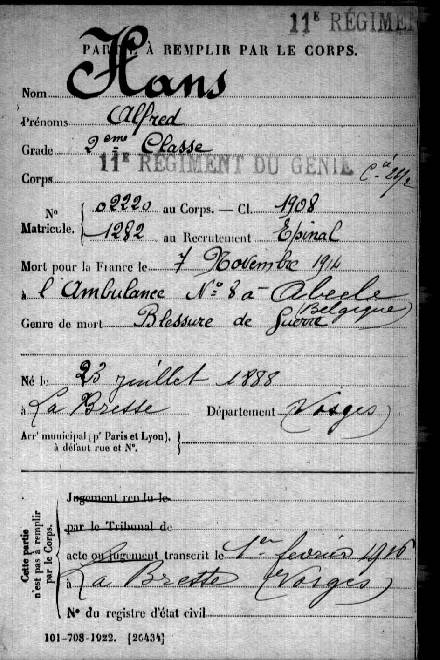 11E RÉGIMEN
PARTIE À REMPLIR PAR LE CORPS.
Nom Hans
Prénoms Alfred
Grade 2eme Classe
11E RÉGIMENT DU GÉNIE
Corps Cie
No 02220 au Corps. — Cl. 1908
Matricule. 1282 au Recrutement Epinal
Mort pour la France le 7 Novembre 1914
à l'Ambulance No 8 à Abeele
(Belgique)
Genre de mort Blessure de Guerre
Né le 23 juillet 1888
à La Bresse Département Vosges
Arrt municipal (pr Paris et Lyon),
à défaut rue et No.
Cette partie
n'est pas à remplir
par le Corps.
Jugement rendu le
par le Tribunal de
acte ou jugement transcrit le 1er février 1916
à La Bresse (Vosges)
No du registre d'état civil
101-708-1922. [26434]